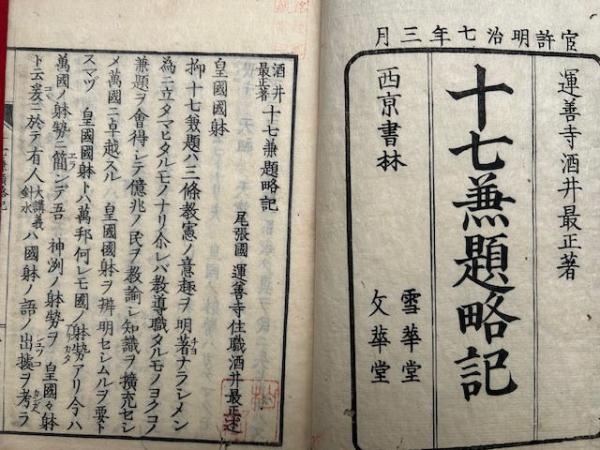 官許明治七年三月
運善寺酒井最正著
十七兼題略記
西京書林
雪華堂
文華堂
酒井最正著 十七兼題略記
尾張國 運善寺住職酒井最正述
皇國國躰
抑十七兼題ハ三條教憲ノ意趣ヲ明著ナラシメン
為ニ立タマヒタルモノナリ尒レバ教導職タルモノヨクコノ
兼題ヲ會得シテ億兆ノ民ヲ教諭シ知識ヲ擴充セシ
メ萬國ニ卓越スル 皇國國躰ヲ辨明セシムルヲ要ト
スマヅ 皇國國躰トハ萬邦何レモ國ノ躰勢アリ今ハ
萬國ノ躰勢ニ簡ンデ吾 神洲ノ躰勢ヲ 皇國々躰
ト云爰ニ於テ有人大講義針水ハ國躰ノ語ノ出據ヲ考ラ